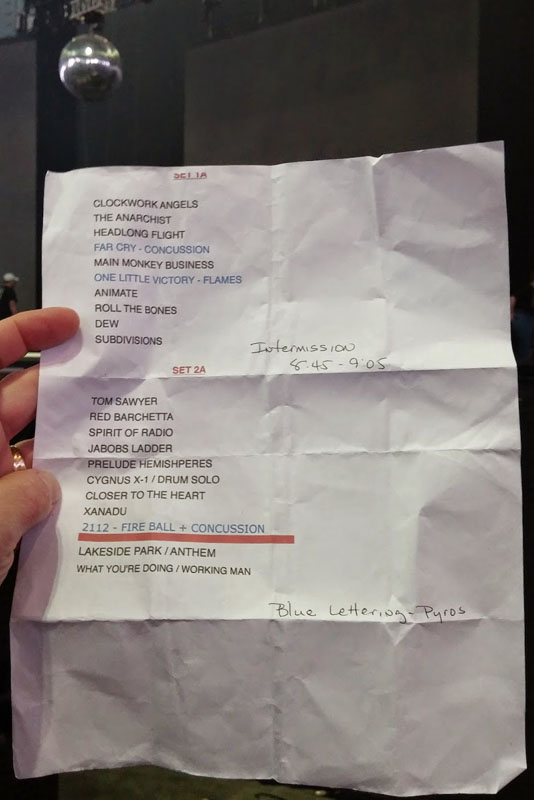 SET 1A
CLOCKWORK ANGELS
THE ANARCHIST
HEADLONG FLIGHT
FAR CRY - CONCUSSION
MAIN MONKEY BUSINESS
ONE LITTLE VICTORY - FLAMES
ANIMATE
ROLL THE BONES
DEW
SUBDIVISIONS
Intermission
8:45 - 9:05
SET 2A
TOM SAWYER
RED BARCHETTA
SPIRIT OF RADIO
JABOBS LADDER
PRELUDE HEMISHPERES
CYGNUS X-1 / DRUM SOLO
CLOSER TO THE HEART
XANADU
2112 - FIRE BALL + CONCUSSION
LAKESIDE PARK / ANTHEM
WHAT YOU'RE DOING / WORKING MAN
Blue Lettering - Pyros